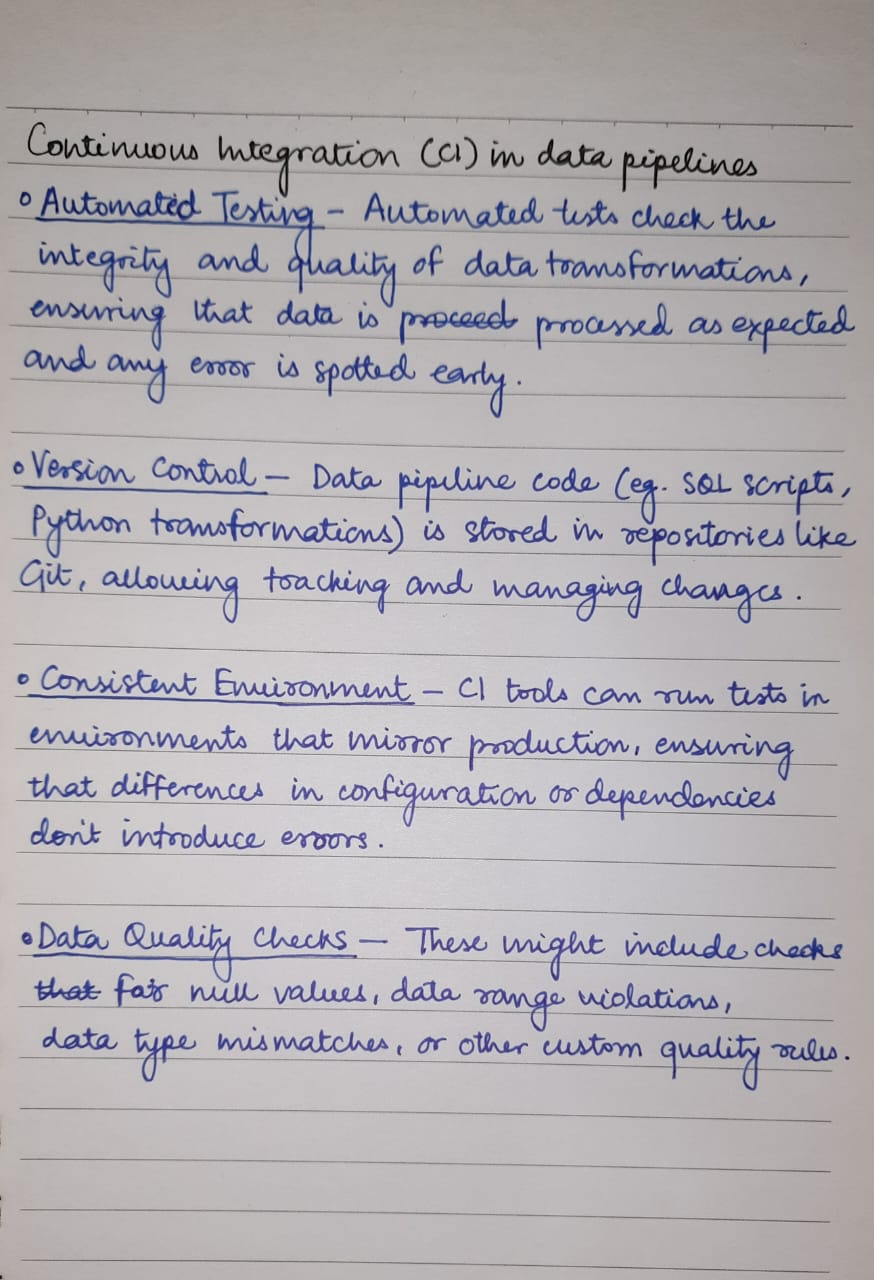 Continuous Integration (CI) in data pipelines
• Automated Testing - Automated tests check the
integrity and quality of data transformations,
ensuring that data is proceed processed as expected
and any error is spotted early.
• Version Control - Data pipeline code (eg. SQL scripts,
Python transformations) is stored in repositories like
Git, allowing tracking and managing changes.
• Consistent Environment - CI tools can run tests in
environments that mirror production, ensuring
that differences in configuration or dependencies
don't introduce errors.
• Data Quality Checks - These might include checks
that for null values, data range violations,
data type mismatches, or other custom quality rules.